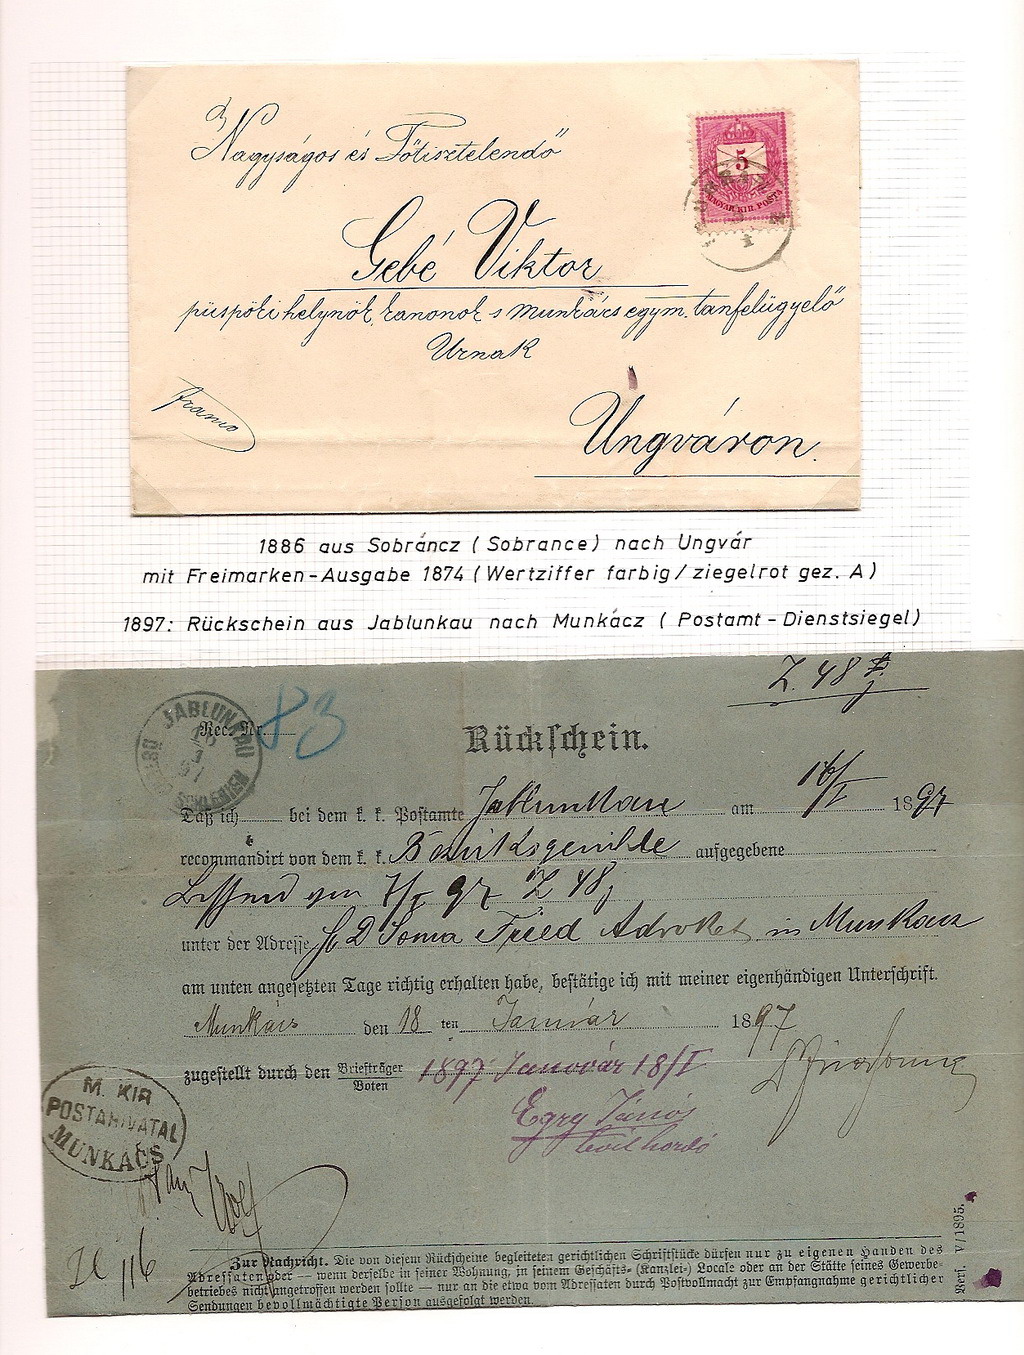 Nagyságos és Főtisztelendő
5
MAGYAR KIR. POSTA
Gebé Viktor
püspöki helynök, kanonok s munkács egym. tanfelügyelő
Urnak
franco
Ungváron.
1886 aus Sobráncz ( Sobrance ) nach Ungvár
mit Freimarken-Ausgabe 1874 ( Wertziffer farbig / ziegelrot gez. A )
1897: Rückschein aus Jablunkau nach Munkácz ( Postamt - Dienstsiegel )
Z. 48
JABLUNKAU
Rec. Nr. 83
Rückschein.
Daß ich bei dem k. k. Postamte Jablunkau am 16/I 1897
recommandirt von dem k. k. Bezirksgerichte aufgegebene
7/I 97 Z 48
unter der Adresse Soma Fried Advokat in Munkacz
am unten angesetzten Tage richtig erhalten habe, bestätige ich mit meiner eigenhändigen Unterschrift.
Munkács den 18 ten Január 1897
zugestellt durch den Briefträger
Boten
1897 Janovár 18/I
Egry János
levélhordó
M. KIR
POSTAHIVATAL
MUNKÁCS
116
Zur Nachricht. Die von diesem Rückscheine begleiteten gerichtlichen Schriftstücke dürfen nur zu eigenen Handen des
Adressaten oder — wenn derselbe in seiner Wohnung, in seinem Geschäfts- (Kanzlei-) Locale oder an der Stätte seines Gewerbe-
betriebes nicht angetroffen werden sollte — nur an die etwa vom Adressaten durch Postvollmacht zur Empfangnahme gerichtlicher
Sendungen bevollmächtigte Person ausgefolgt werden.
V/1895.